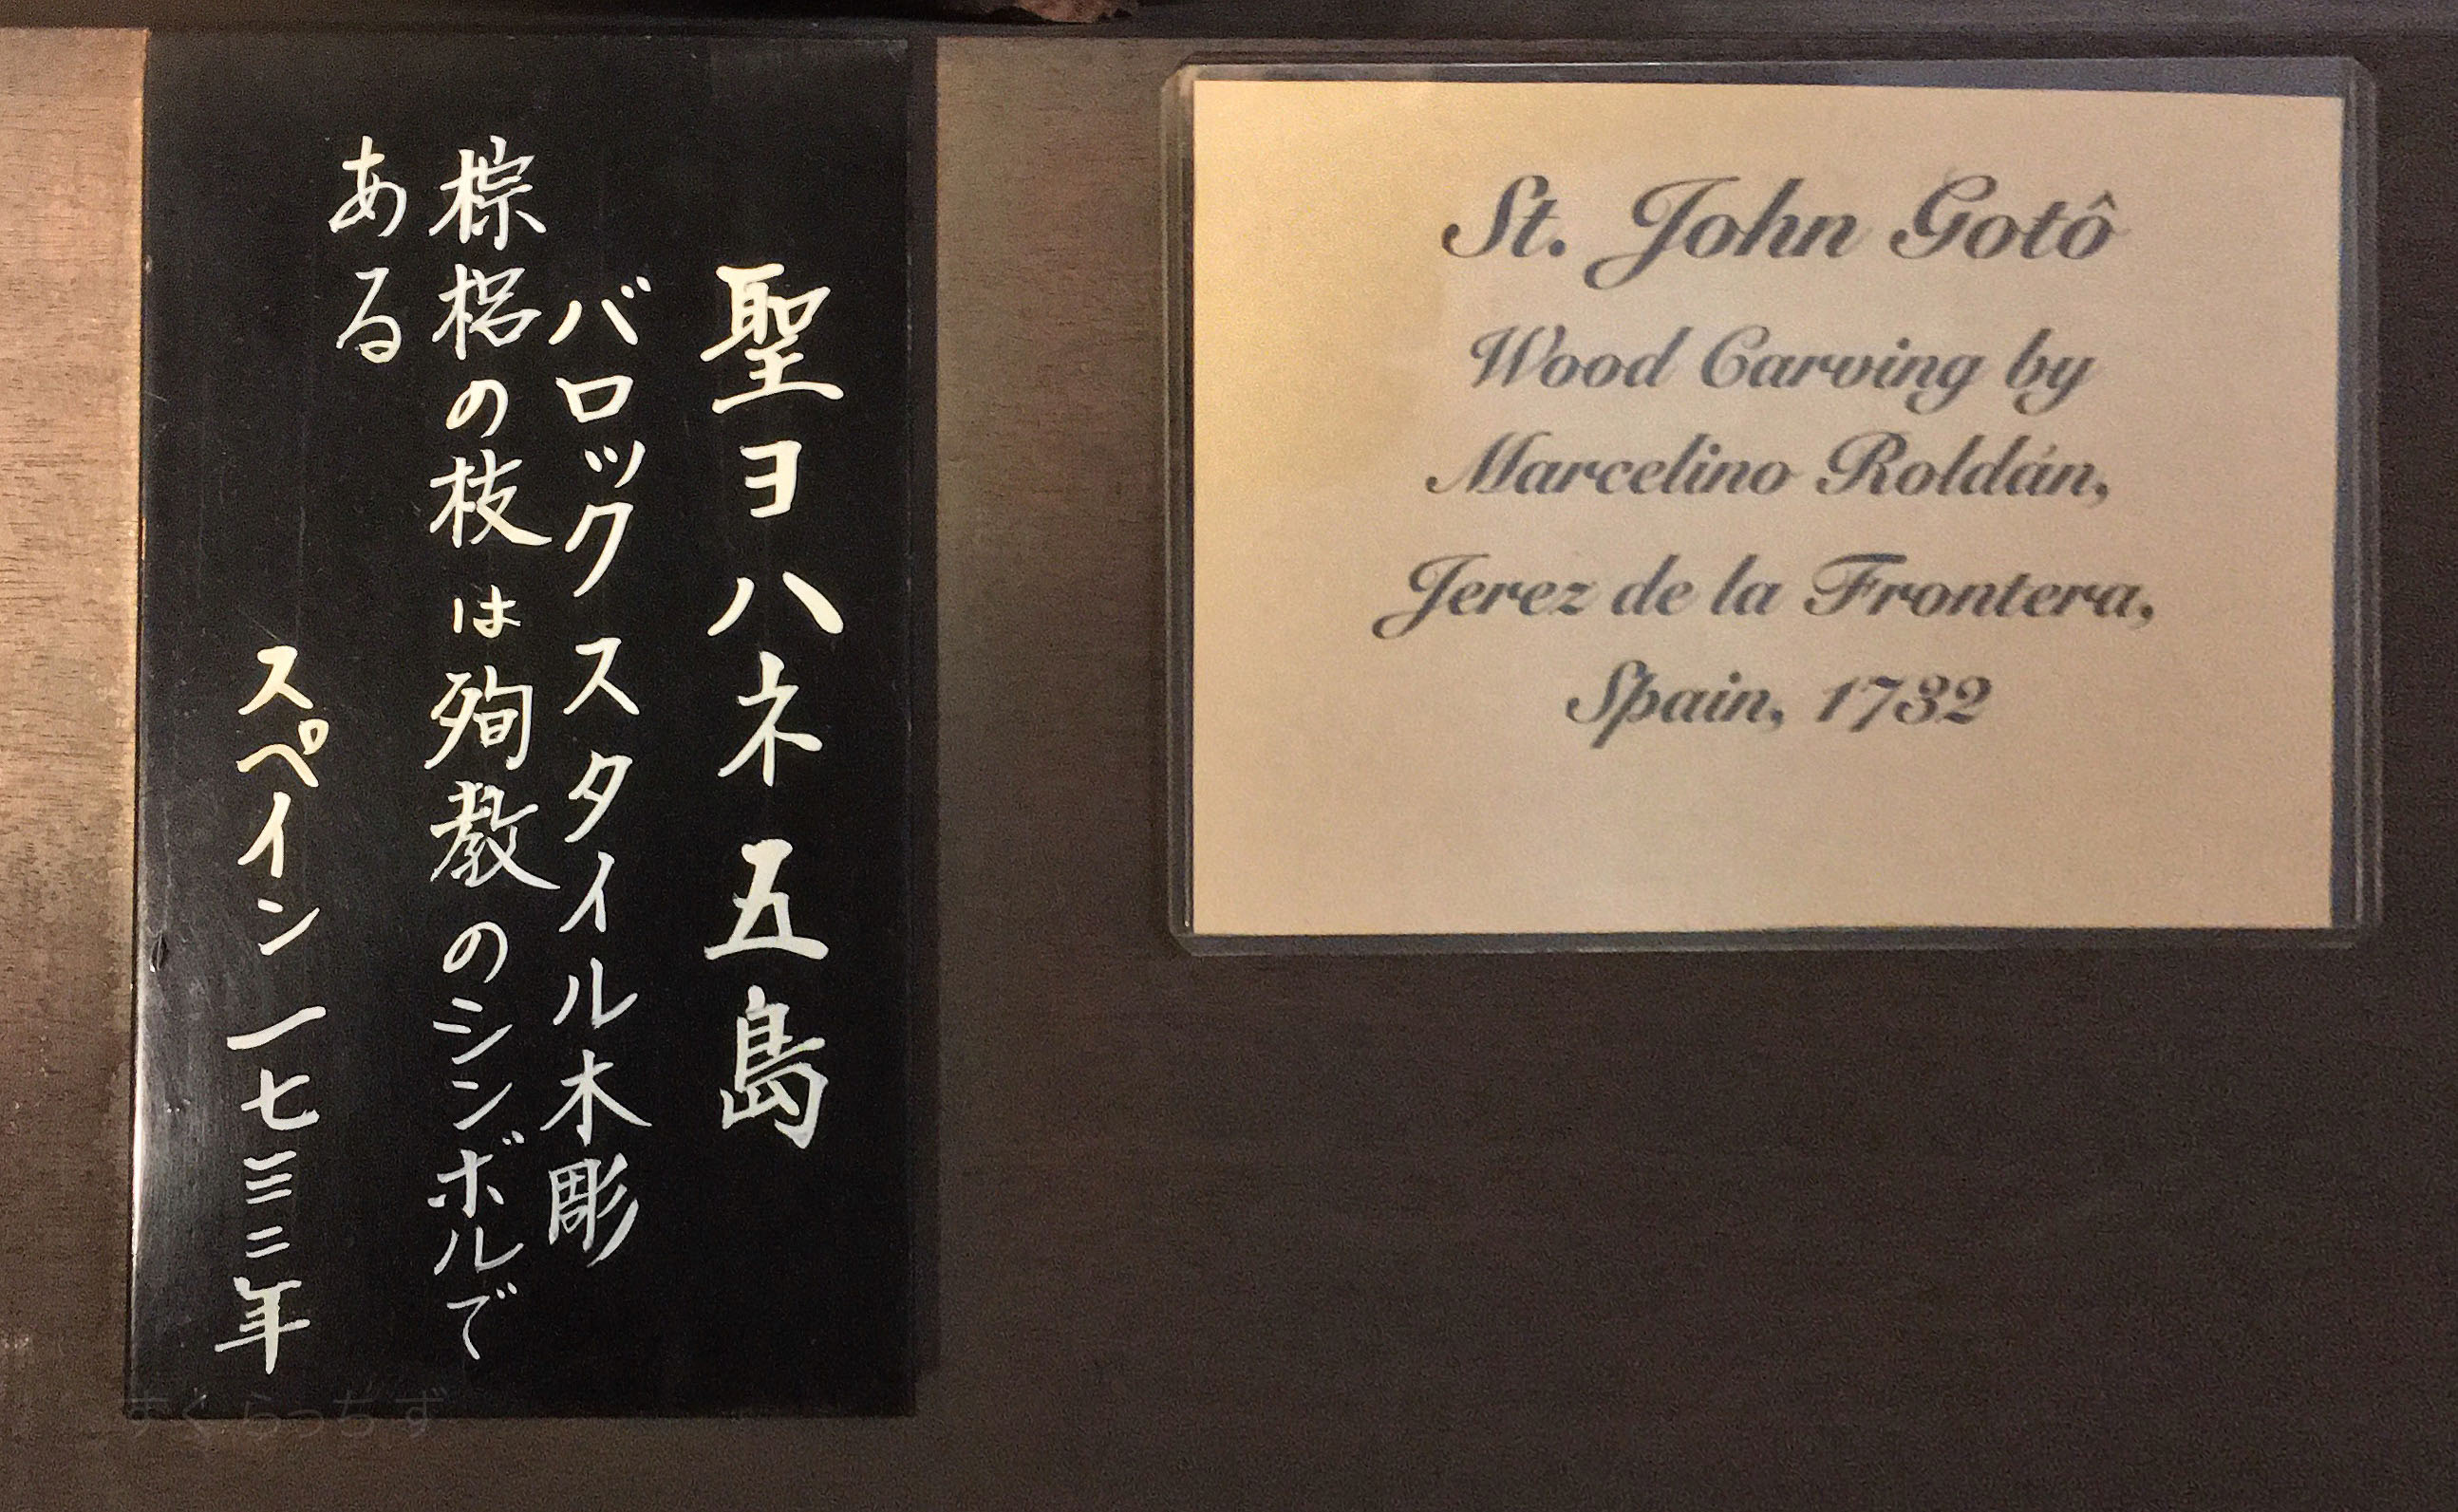 聖ヨハネ五島
バロックスタイル木彫
棕梠の枝は殉教のシンボルで
ある
スペイン一七三二年
St. John Gotô
Wood Carving by
Marcelino Roldán,
Jerez de la Frontera,
Spain, 1732
すくらっちず